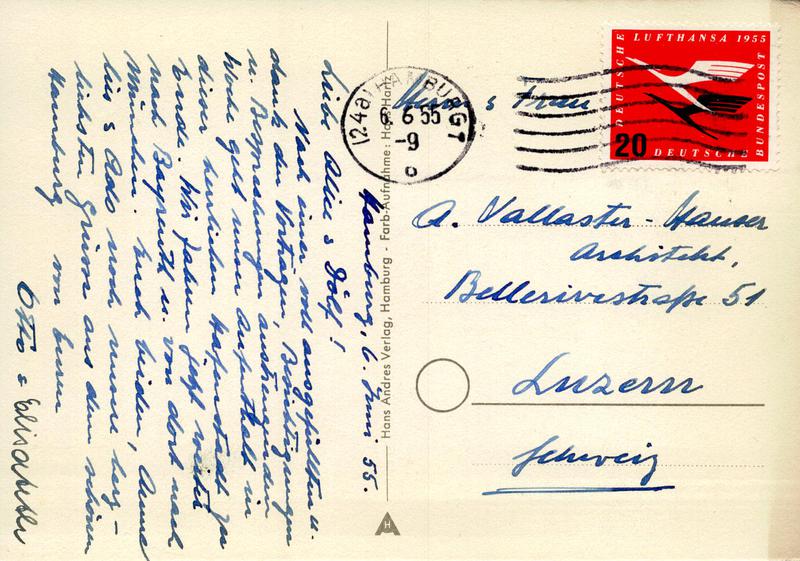 Hamburg, 6. Juni 55.
Liebe Alice & Dölf!
Nach einer voll ausgefüllten u.
dank der Vorträgen, Besichtigungen
u. Besprechungen anstrengenden
Woche geht unser Aufenthalt in
dieser herrlichen Hafenstadt zu
Ende. Wir fahren jetzt weiter
nach Bayreuth u. von dort nach
München. Euch beiden, Anne
lies & Ados noch unsere herz-
lichsten Grüsse aus dem schönen
Hamburg von Euren
Otto & Elisabeth
Hans Andres Verlag, Hamburg - Farb-Aufnahme: Hans Hartz
H
(24a) HAMBURG 1
6. 6. 55
-9
c
DEUTSCHE LUFTHANSA 1955
DEUTSCHE BUNDESPOST
20
Herrn & Frau
A. Vallaster-Hauser
Architekt,
Bellerivestraße 51
Luzern
Schweiz